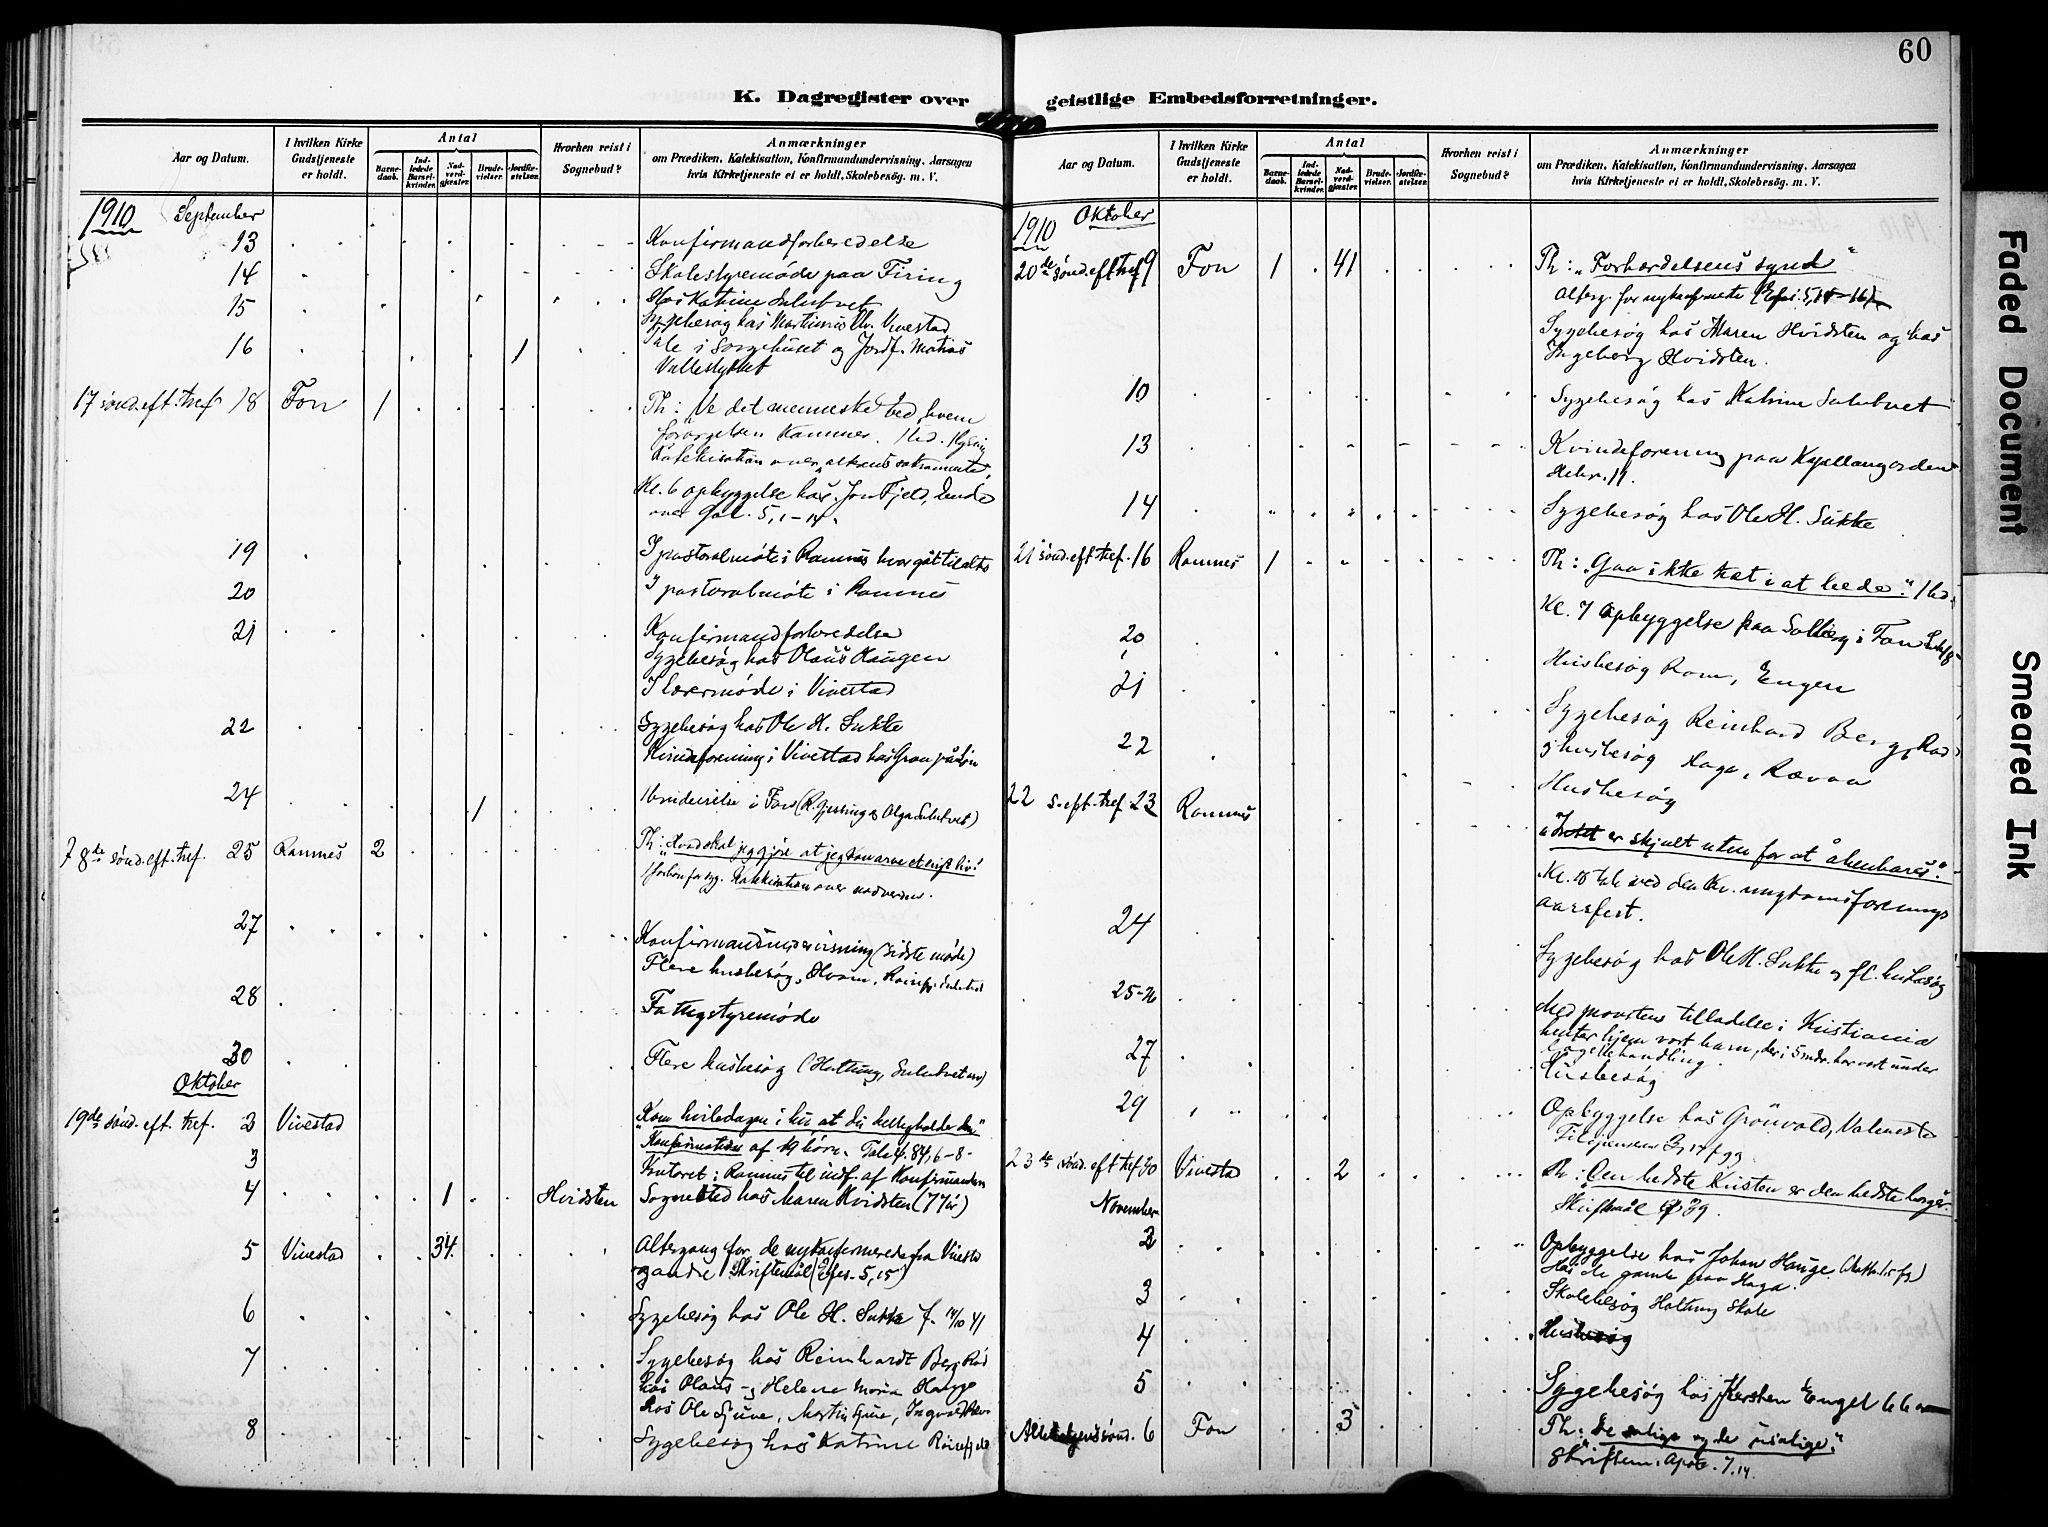 60
K. Dagregister over geistlige Embedsforretninger.
Aar og Datum.
I hvilken Kirke Gudstjeneste er holdt.
Antal
Barnedaab.
Indledede Barselkvinder.
Nadverdgjæster.
Brudevielser.
Jordfæstelser.
Hvorhen reist i Sognebud?
Anmærkninger
om Prædiken, Katekisation, Konfirmandundervisning, Aarsagen
hvis Kirketjeneste ei er holdt, Skolebesøg. m. V.
1910 September
13 Konfirmandforberedelse
14 Skolestyremøde paa Firing
15 Hos Katrine Sulutvet
Sygebesøg hos Martinus Chr. Vivestad
16 1 Tale i Sørgehuset og Jordf. Matias
Vallestykket
17 sønd. eft. tref. 18 Fon 1 Th: "Ve det menneske ved hvem
forargelsen kommer.
Katekisation over alterens sakramente
Kl. 6 opbyggelse hos Jon Fjeld,
over Gal. 5, 1-14.
19 I pastoralmøte i Ramnes
20 I pastoralmøte i Ramnes
21 Konfirmandforberedelse
Sygebesøg hos Olaus Haugen
I lærermøde i Vivestad
22 Sygebesøg hos Ole H. Sukke
Kvindeforening i Vivestad hos Gran
24 1 Brudevielse i Fon (R. Gjessing og Olga Sulutvet)
18de sønd. eft. tref. 25 Ramnes 2 Th: "Hvad skal jeg gjøre at jeg kan arve et evigt liv!
1 forbøn for syg. Katekisation over nadveren.
27 Konfirmandundervisning (sidste møde)
Flere husbesøg,
28 Fattigstyremøde
30 Flere husbesøg (Holtung, Sulutvet
Oktober
19de sønd. eft. tref. 2 Vivestad "Kom hviledagen i hu at du helligholde den"
Konfirmation af 19 børn. Tale 84, 6-8.
3 Kontoret i Ramnes til indf. af Konfirmanden
4 1 Hvidsten Sognebud hos Maren Hvidsten (77 år)
5 Vivestad 34 Altergang for de nykonfirmerede fra Vivestad
og andre Skriftemål (Efes. 5, 15)
6 Sygebesøg hos Ole H. Sukke f. 14/10 41
7 Sygebesøg hos Reinhardt Berg Råd
hos Olaus og Helene Maria Hauge
hos Ole Sjuve, Martin Sjuve,
8 Sygebesøg hos Katrine
K. Dagregister over geistlige Embedsforretninger.
Aar og Datum.
I hvilken Kirke Gudstjeneste er holdt.
Antal
Barnedaab.
Indledede Barselkvinder.
Nadverdgjæster.
Brudevielser.
Jordfæstelser.
Hvorhen reist i Sognebud?
Anmærkninger
om Prædiken, Katekisation, Konfirmandundervisning, Aarsagen
hvis Kirketjeneste ei er holdt, Skolebesøg. m. V.
1910 Oktober
20de sønd. eft. tref 9 Fon 1 41 Th: "Forhærdelsens synd"
Alterg. for nykonfirmete (Efes. 5, 15-16)
Sygebesøg hos Maren Hvidsten og hos
Ingeborg Hvidsten.
10 Sygebesøg hos Katrine Sulutvet
13 Kvindeforening paa Kapellangården
Hebr. 11.
14 Sygebesøg hos Ole H. Sukke
21 sønd. eft. tref. 16 Ramnes 1 Th: "Gaa ikke træt i at bede."
Kl. 7 Opbyggelse paa Solberg i Fon Luk 18
20 Husbesøg Rom, Engen
21 Sygebesøg Reinhard Berg, Råd
og husbesøg Haga, Rævaa
22 Husbesøg
22 s. eft. tref. 23 Ramnes "Intet er skjult uten for at åbenbares".
Kl. tale ved den kr. ungdomsforenings
aarsfest.
24 Sygebesøg hos Ole H. Sukke og fl. husbesøg
25-26 Med provstens tilladelse i Kristiania
henter hjem vort barn, der i 5 mdr. har vært under
lægebehandling.
27 Husbesøg
29 Opbyggelse hos Grønvold,
Filipenserne 3, 14 fgg
23de sønd. eft tref 30 Vivestad 2 Th: "Den bedste Kristen er den bedste borger.
Skriftemål 39.
November
2 Opbyggelse hos Johan Hauge
Hos de gamle paa Haga.
3 Skolebesøg Holtung Skole
4 Husbesøg
5 Sygebesøg hos Kirsten Engel
Allehelgenssønd. 6 Fon 3 Th: "De salige og de usalige."
Skriftem. Apok. 7, 14.
Faded Document
Smeared Ink